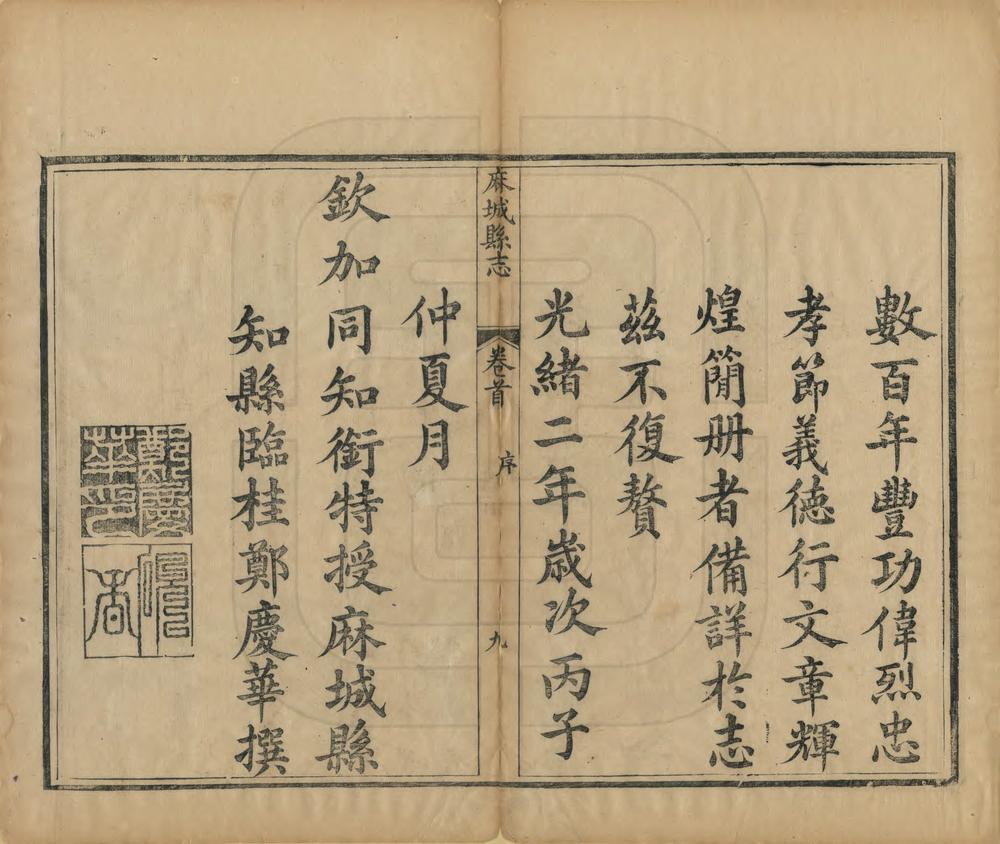 數百年豐功偉烈忠
孝節義德行文章輝
煌簡册者備詳於志
茲不復贅
光緒二年歲次丙子
麻城縣志
卷首
序
九
仲夏月
欽加同知銜特授麻城縣
知縣臨桂鄭慶華撰
鄭慶
華印